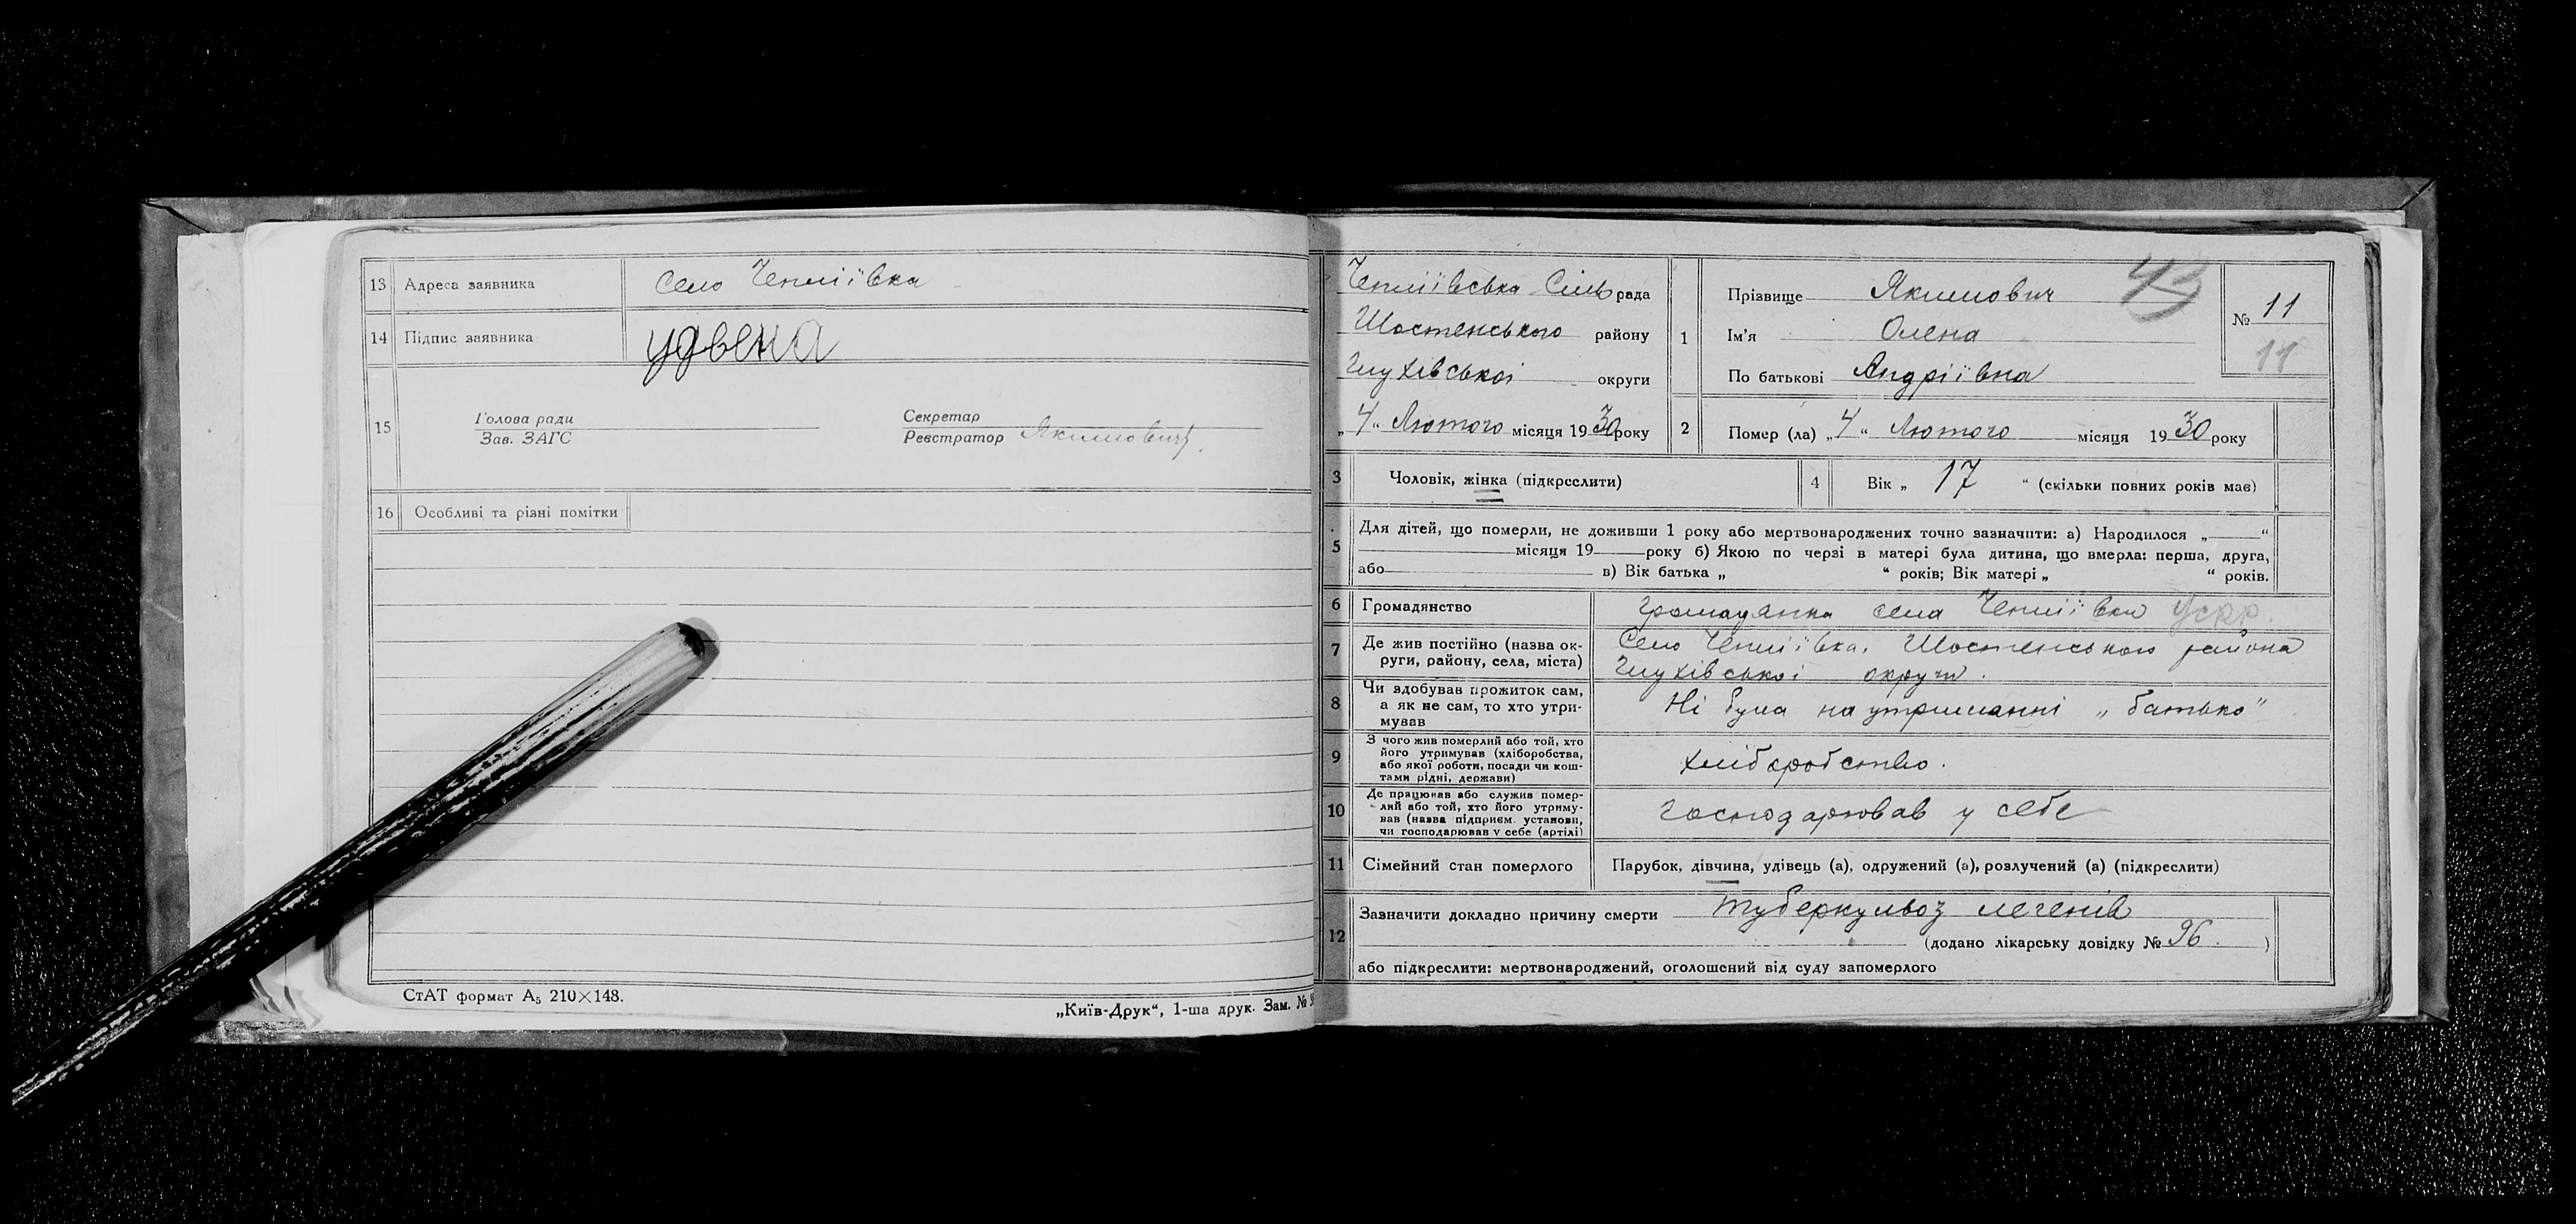 13 Адреса заявника Село Чепліївка
14 Підпис заявника удвена
15 Голова ради
Зав. ЗАГС
Секретар
Реєстратор Якимович
16 Особливі та різні помітки
СтАТ формат А5 210×148.
„Київ-Друк“, 1-ша друк. Зам. №
Чепліївська Сільрада
Шостенського району
Глухівської округи
„4“ Лютого місяця 1930 року
1 Прізвище Якимович
Ім'я Олена
По батькові Андріївна
43
№ 11
11
2 Помер (ла) „4“ Лютого місяця 1930 року
3 Чоловік, жінка (підкреслити)
4 Вік „ 17 “ (скільки повних років має)
5 Для дітей, що померли, не доживши 1 року або мертвонароджених точно зазначити: а) Народилося „ “
місяця 19 року б) Якою по черзі в матері була дитина, що вмерла: перша, друга,
або в) Вік батька „ “ років; Вік матері „ “ років.
6 Громадянство громадянка села Чепліївки УСРР.
7 Де жив постійно (назва ок-
руги, району, села, міста)
Село Чепліївка, Шостенського района
Глухівської округи.
8 Чи здобував прожиток сам,
а як не сам, то хто утри-
мував
Ні була на утриманні „батько“
9 З чого жив померлий або той, хто
його утримував (хліборобства,
або якої роботи, посади чи кош-
тами рідні, держави)
хліборобство.
10 Де працював або служив помер-
лий або той, хто його утриму-
вав (назва підприєм. установи,
чи господарював у себе (артілі)
господарював у себе
11 Сімейний стан померлого Парубок, дівчина, удівець (а), одружений (а), розлучений (а) (підкреслити)
12 Зазначити докладно причину смерти туберкульоз легенів
(додано лікарську довідку № 96. )
або підкреслити: мертвонароджений, оголошений від суду запомерлого